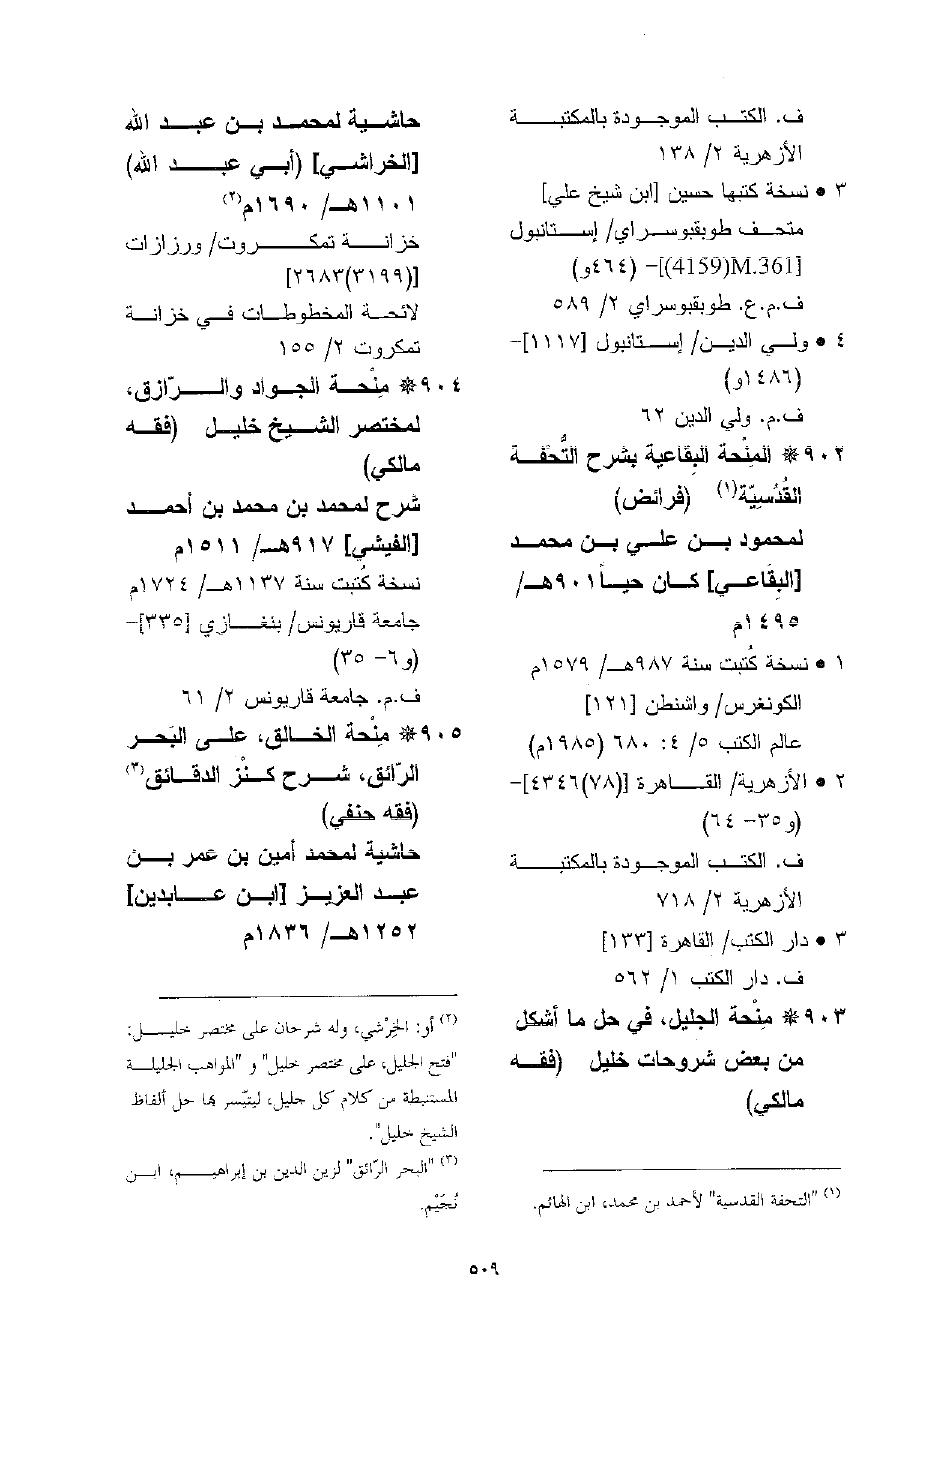 ف. الكتب الموجودة بالمكتبة
الأزهرية ٢/ ١٣٨
٣ • نسخة كتبها حسين [ابن شيخ علي]
متحف طوبقبوسراي/ إستانبول
[4159)M.361)]– (٤٦٤و)
ف.م.ع. طوبقبوسراي ٢/ ٥٨٩
٤ • ولي الدين/ إستانبول [١١١٧]–
(١٤٨٦و)
ف.م. ولي الدين ٦٢
٩٠٢* المِنْحة البِقاعية بشرح التُّحْفة
القُدْسيّة(١) (فرائض)
لمحمود بن علي بن محمد
[البِقَاعي] كان حياً ٩٠١هـ/
١٤٩٥م
١ • نسخة كُتبت سنة ٩٨٧هـ/ ١٥٧٩م
الكونغرس/ واشنطن [١٢١]
عالم الكتب ٥/ ٤: ٦٨٠ (١٩٨٥م)
٢ • الأزهرية/ القاهرة [(٧٨)٤٣٤٦]–
(و٣٥– ٦٤)
ف. الكتب الموجودة بالمكتبة
الأزهرية ٢/ ٧١٨
٣ • دار الكتب/ القاهرة [١٣٣]
ف. دار الكتب ١/ ٥٦٢
٩٠٣* مِنْحة الجليل، في حل ما أشكل
من بعض شروحات خليل (فقه
مالكي)
(١) "التحفة القدسية" لأحمد بن محمد، ابن الهائم.
حاشية لمحمد بن عبد الله
[الخراشي] (أبي عبد الله)
١١٠١هـ/ ١٦٩٠م(٢)
خزانة تمكروت/ ورزازات
[(٣١٩٩)٢٦٨٣]
لائحة المخطوطات في خزانة
تمكروت ٢/ ١٥٥
٩٠٤* مِنْحة الجواد والرّازق،
لمختصر الشيخ خليل (فقه
مالكي)
شرح لمحمد بن محمد بن أحمد
[الفيشي] ٩١٧هـ/ ١٥١١م
نسخة كُتبت سنة ١١٣٧هـ/ ١٧٢٤م
جامعة قاريونس/ بنغازي [٣٣٥]–
(و٦– ٣٥)
ف.م. جامعة قاريونس ٢/ ٦١
٩٠٥* مِنْحة الخالق، على البَحر
الرّائق، شرح كنْز الدقائق(٣)
(فقه حنفي)
حاشية لمحمد أمين بن عمر بن
عبد العزيز [ابن عابدين]
١٢٥٢هـ/ ١٨٣٦م
(٢) أو: الخِرْشي، وله شرحان على مختصر خليل:
"فتح الجليل، على مختصر خليل" و "المواهب الجليلة
المستنبطة من كلام كل جليل، ليتيّسر بها حل ألفاظ
الشيخ خليل".
(٣) "البحر الرّائق" لزين الدين بن إبراهيم، ابن
نُجَيْم.
٥٠٩